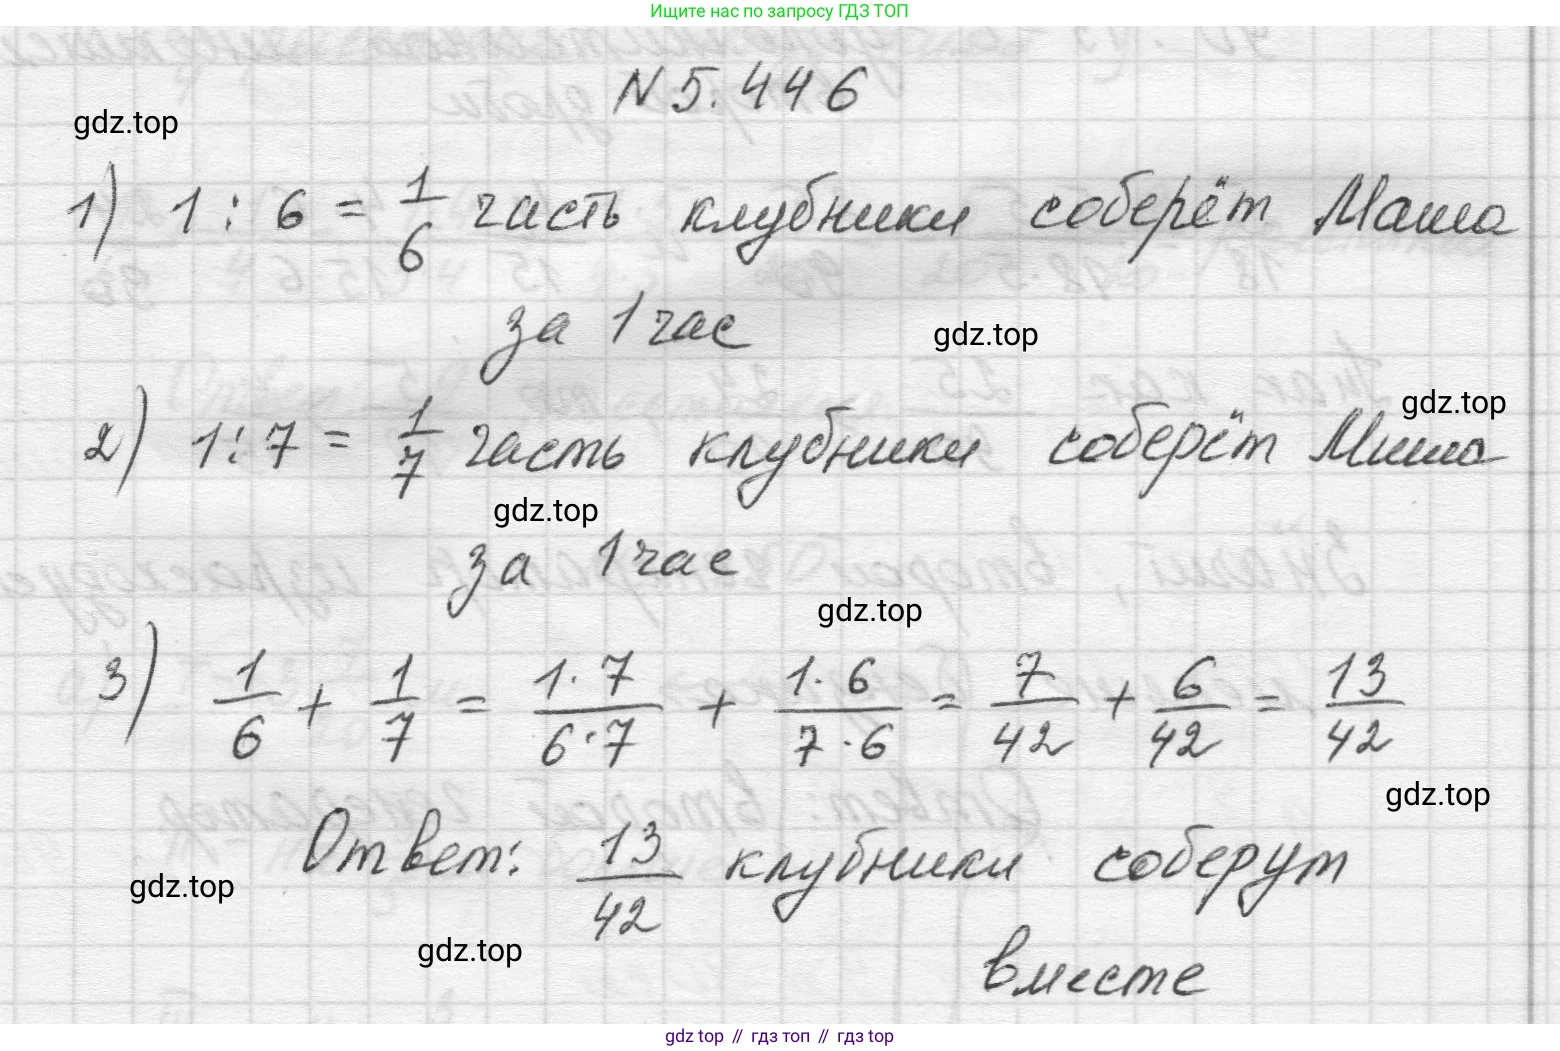 Ищите нас по запросу ГДЗ ТОП
N 5.446
gdz.top
1) 1 : 6 = 1/6 часть клубники соберёт Маша
за 1 час
gdz.top
gdz.top
2) 1 : 7 = 1/7 часть клубники соберёт Миша
gdz.top
за 1 час
gdz.top
3) 1/6 + 1/7 = 1·7/6·7 + 1·6/7·6 = 7/42 + 6/42 = 13/42
gdz.top
Ответ: 13/42 клубники соберут
gdz.top
gdz.top
вместе
gdz top // гдз топ // gdz top